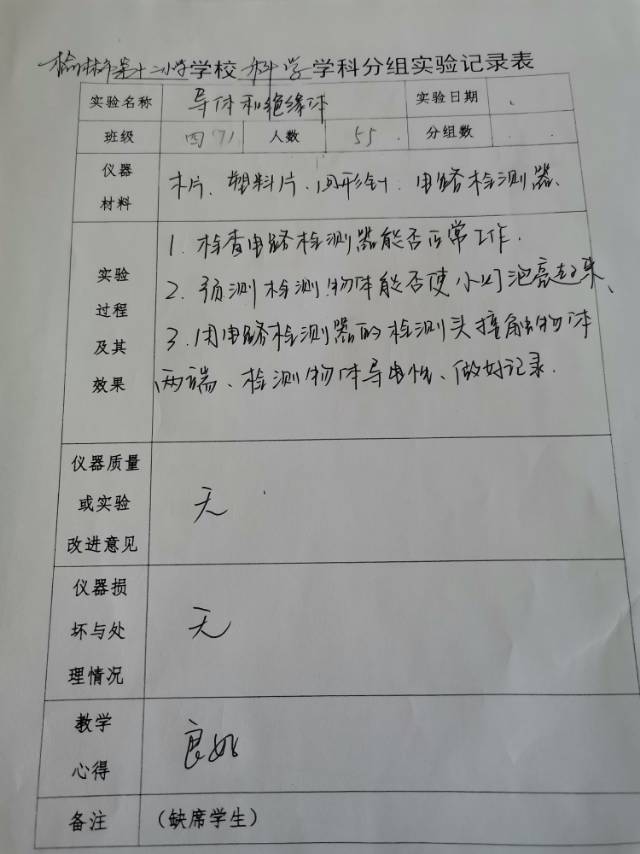 榆林市第十二小学学校 科学 学科分组实验记录表
实验名称 导体和绝缘体 实验日期
班级 四 人数 55 分组数
仪器材料 木片、塑料片、回形针、电路检测器、
实验过程及其效果 1. 检查电路检测器能否正常工作.
2. 预测检测物体能否使小灯泡亮起来、
3. 用电路检测器的检测头接触物体
两端、检测物体导电性、做好记录.
仪器质量或实验改进意见 无
仪器损坏与处理情况 无
教学心得 良好
备注 （缺席学生）